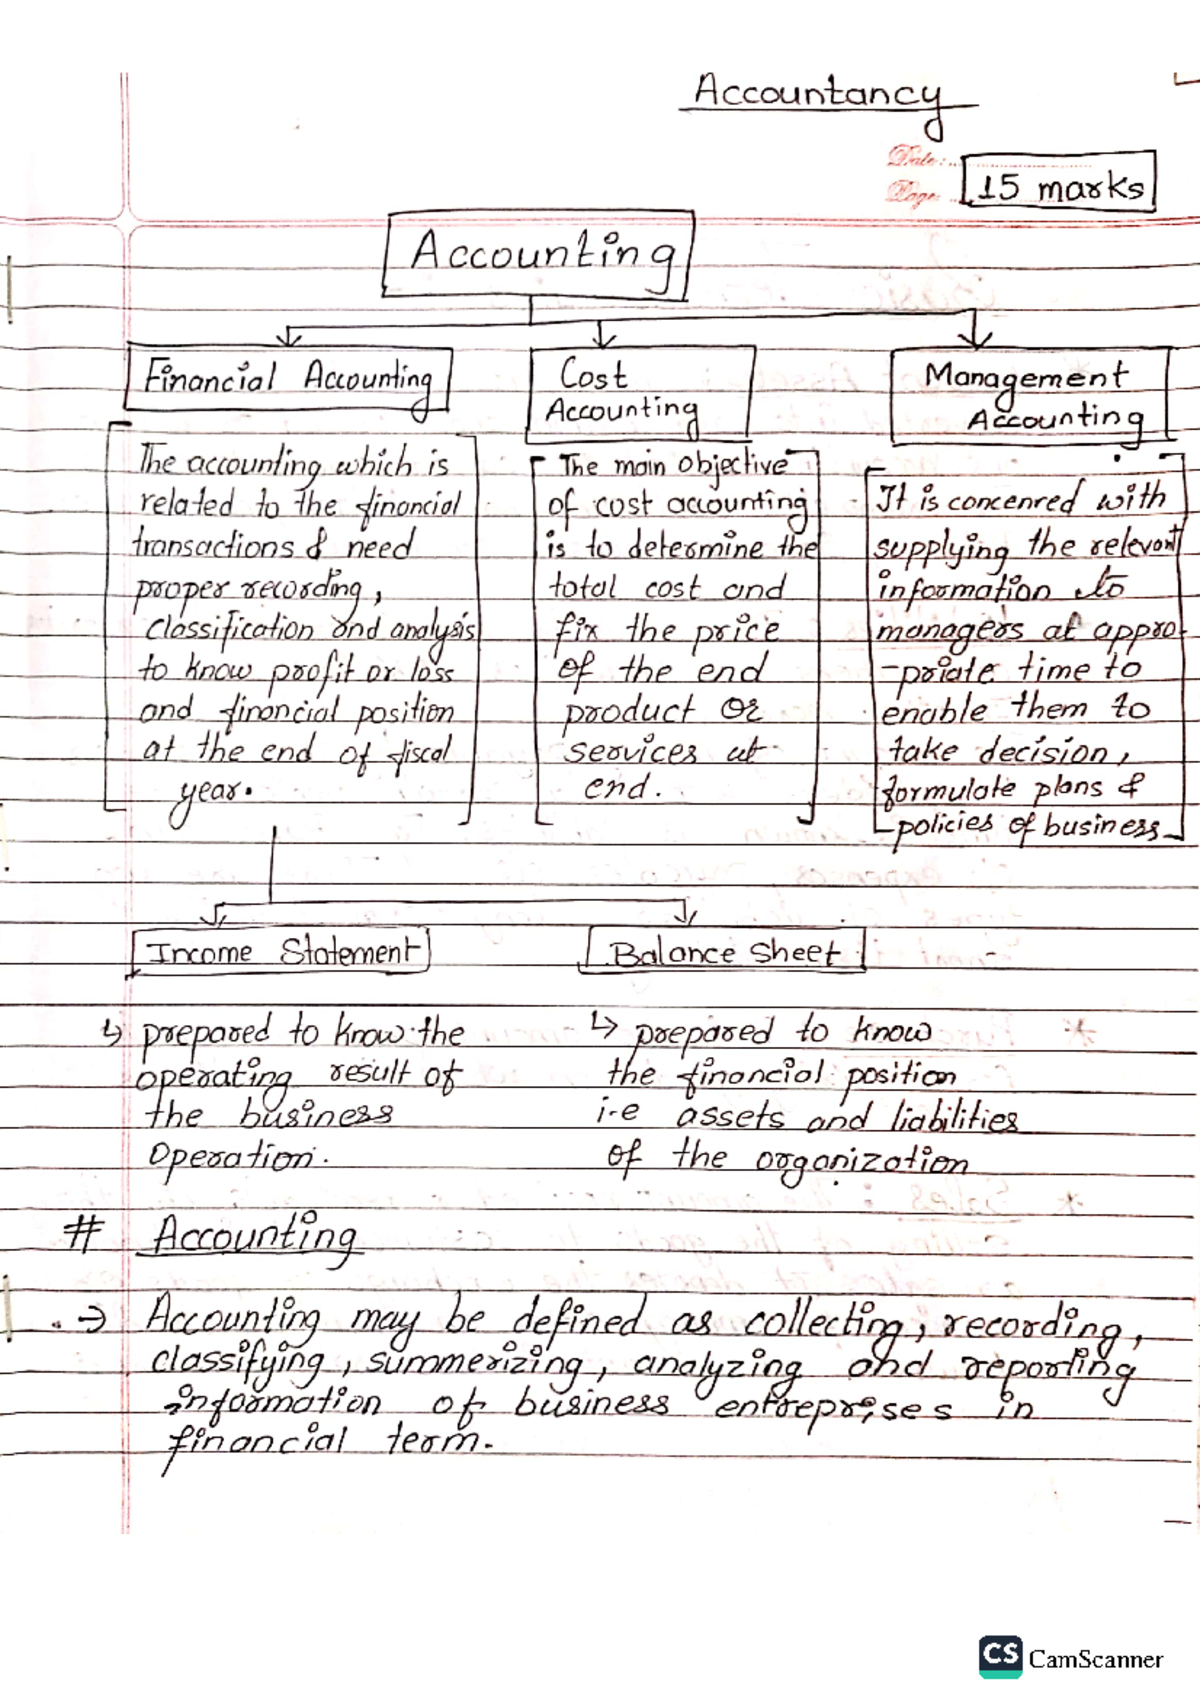 Accountancy
Date:
Page:
15 marks
Accounting
Financial Accounting
The accounting which is
related to the financial
transactions & need
proper recording,
classification and analysis
to know profit or loss
and financial position
at the end of fiscal
year.
Cost
Accounting
The main objective
of cost accounting
is to determine the
total cost and
fix the price
of the end
product or
services at
end.
Management
Accounting
It is concenred with
supplying the relevant
information to
managers at appro
-priate time to
enable them to
take decision,
formulate plans &
policies of business
Income Statement
↳ prepared to know the
operating result of
the business
Operation.
Balance Sheet
↳ prepared to know
the financial position
i.e assets and liabilities
of the organization
# Accounting
→ Accounting may be defined as collecting, recording,
classifying, summerizing, analyzing and reporting
information of business entreprises in
financial term.
CS CamScanner